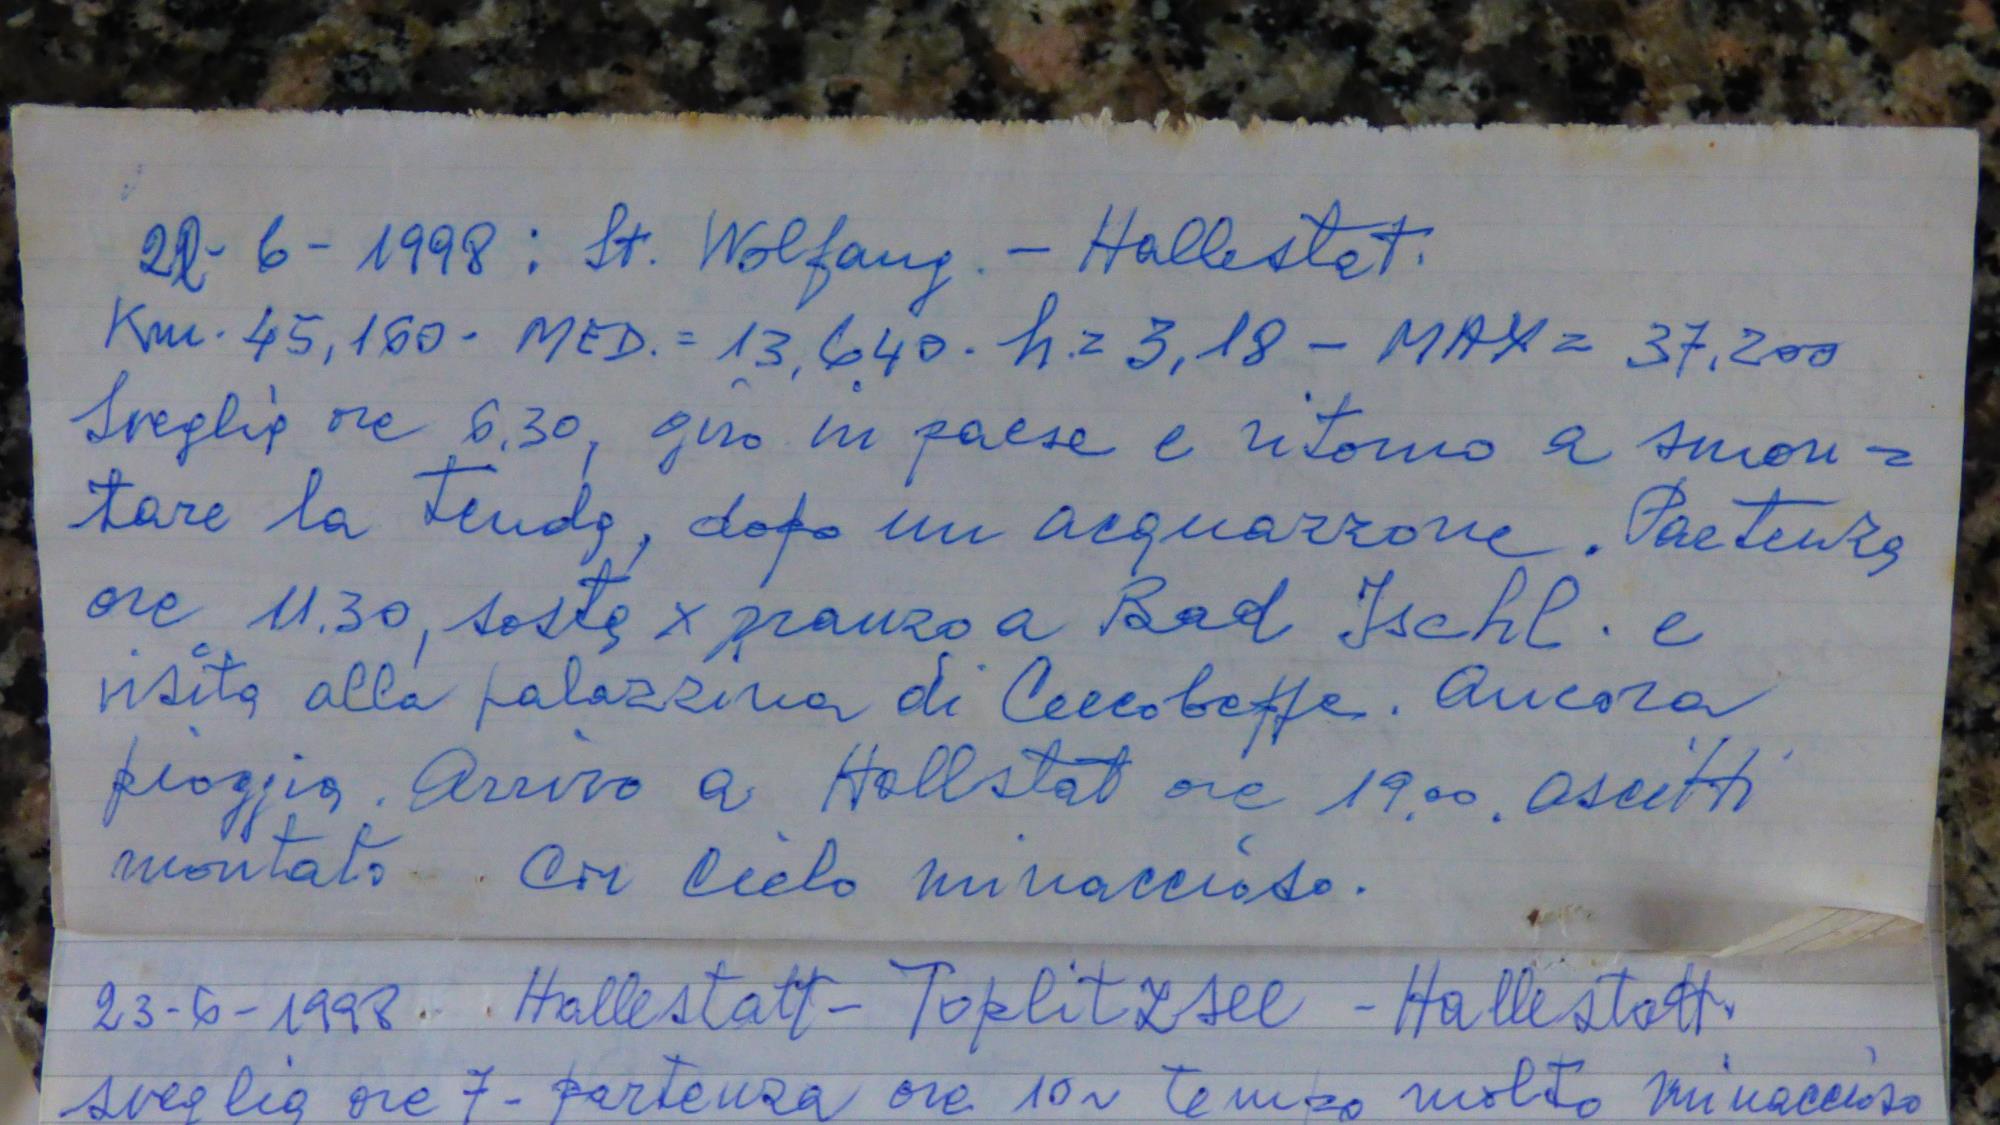 22-6-1998: St. Wolfang. - Hallestat.
Km. 45,160. MED. = 13,640. h = 3,18 - MAX = 37.200
Sveglia ore 6.30, giro in paese e ritorno a smon=
tare la tenda, dopo un acquazzone. Partenza
ore 11.30, sosta x pranzo a Bad Ischl. e
visita alla palazzina di Ceccobeppe. Ancora
pioggia. Arrivo a Hallstat ore 19,00. asciutti
montato con cielo minaccioso.
23-6-1998. Hallestatt - Toplitzsee - Hallestatt.
sveglia ore 7 - partenza ore 10 ~ tempo molto minaccioso